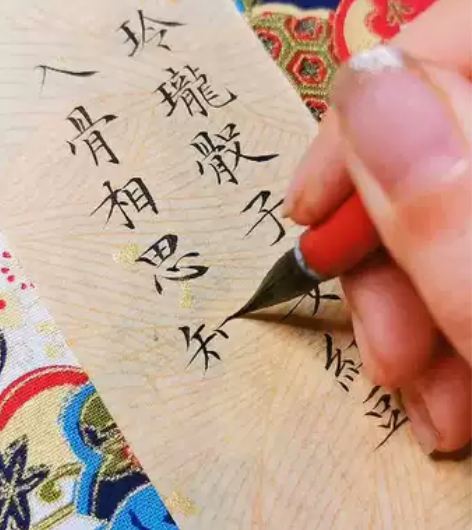 玲瓏骰子安紅豆
入骨相思知